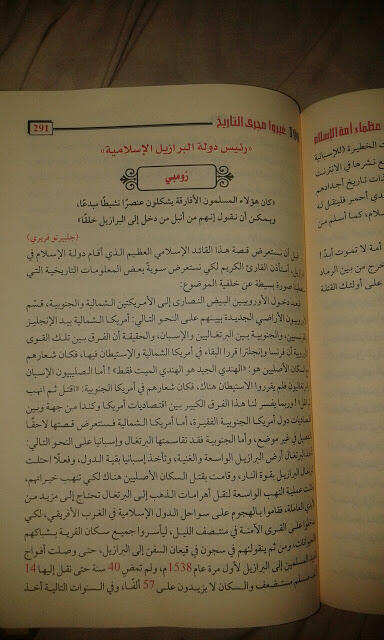 291
غيروا مجرى التاريخ
«رئيس دولة البرازيل الإسلامية»
زومبي
«كان هؤلاء المسلمون الأفارقة يشكلون عنصرًا نشيطًا مبدعًا،
ويمكن أن نقول إنهم من أنبل من دخل إلى البرازيل خلقًا»
(جلبيرتو فريري)
قبل أن نستعرض قصة هذا القائد الإسلامي العظيم الذي أقام دولة الإسلام في
أستأذن القارئ الكريم لكي نستعرض سويةً بعض المعلومات التاريخية التي
صورة بسيطة عن خلفية الموضوع:
دخول الأوروبيين البيض النصارى إلى الأمريكتين الشمالية والجنوبية، قسّم
الأوروبيون الأراضي الجديدة بينهم على النحو التالي: أمريكا الشمالية بيد الإنجليز
والجنوبية بين البرتغاليين والإسبان، والحقيقة أن الفرق بين تلك القوى
أن فرنسا وإنجلترا قررا البقاء في أمريكا الشمالية والإستيطان فيها، فكان شعارهم
السكان الأصليين هو: «الهندي الجيد هو الهندي الميت فقط»! أما الصليبيون الإسبان
والبرتغاليون فلم يقرروا الاستيطان هناك، فكان شعارهم في أمريكا الجنوبية: «اقتل ثم انهب
وربما يفسر لنا هذا الفرق الكبير بين اقتصاديات أمريكا وكندا من جهة وبين
اقتصاديات دول أمريكا الجنوبية الفقيرة، أما أمريكا الشمالية فسنعرض قصتها لاحقًا
في غير موضع، وأما الجنوبية فقد تقاسمتها البرتغال وإسبانيا على النحو التالي:
البرتغال أرض البرازيل الواسعة والغنية، وتأخذ إسبانيا بقية الدول، وفعلًا احتلت
البرتغال البرازيل بقوة النار، وقامت بقتل السكان الأصليين هناك لكي تنهب خيراتهم،
عملية النهب الواسعة لنقل أهرامات الذهب إلى البرتغال تحتاج إلى مزيد من
العاملة، فقاموا بالهجوم على سواحل الدول الإسلامية في الغرب الأفريقي، لكي
على القرى الآمنة في منتصف الليل، ليأسروا جميع سكان القرية بشباكهم
ومن ثم ينقلونهم في سجون في قيعان السفن إلى البرازيل، حتى وصلت أفواج
المسلمين إلى البرازيل لأول مرة عام 1538م، ولم تمض 40 سنة حتى نقل إليها 14
مسلم مستضعف والسكان لا يزيدون على 57 ألفًا، وفي السنوات التالية أخذ